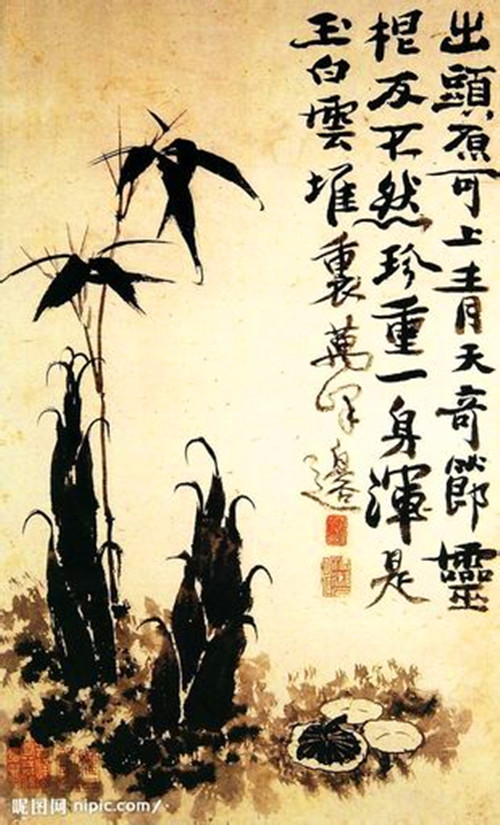 出頭原可上青天奇節靈
根反不然珍重一身渾是
玉白雲堆裏萬峯邊
昵图网 nipic.com/